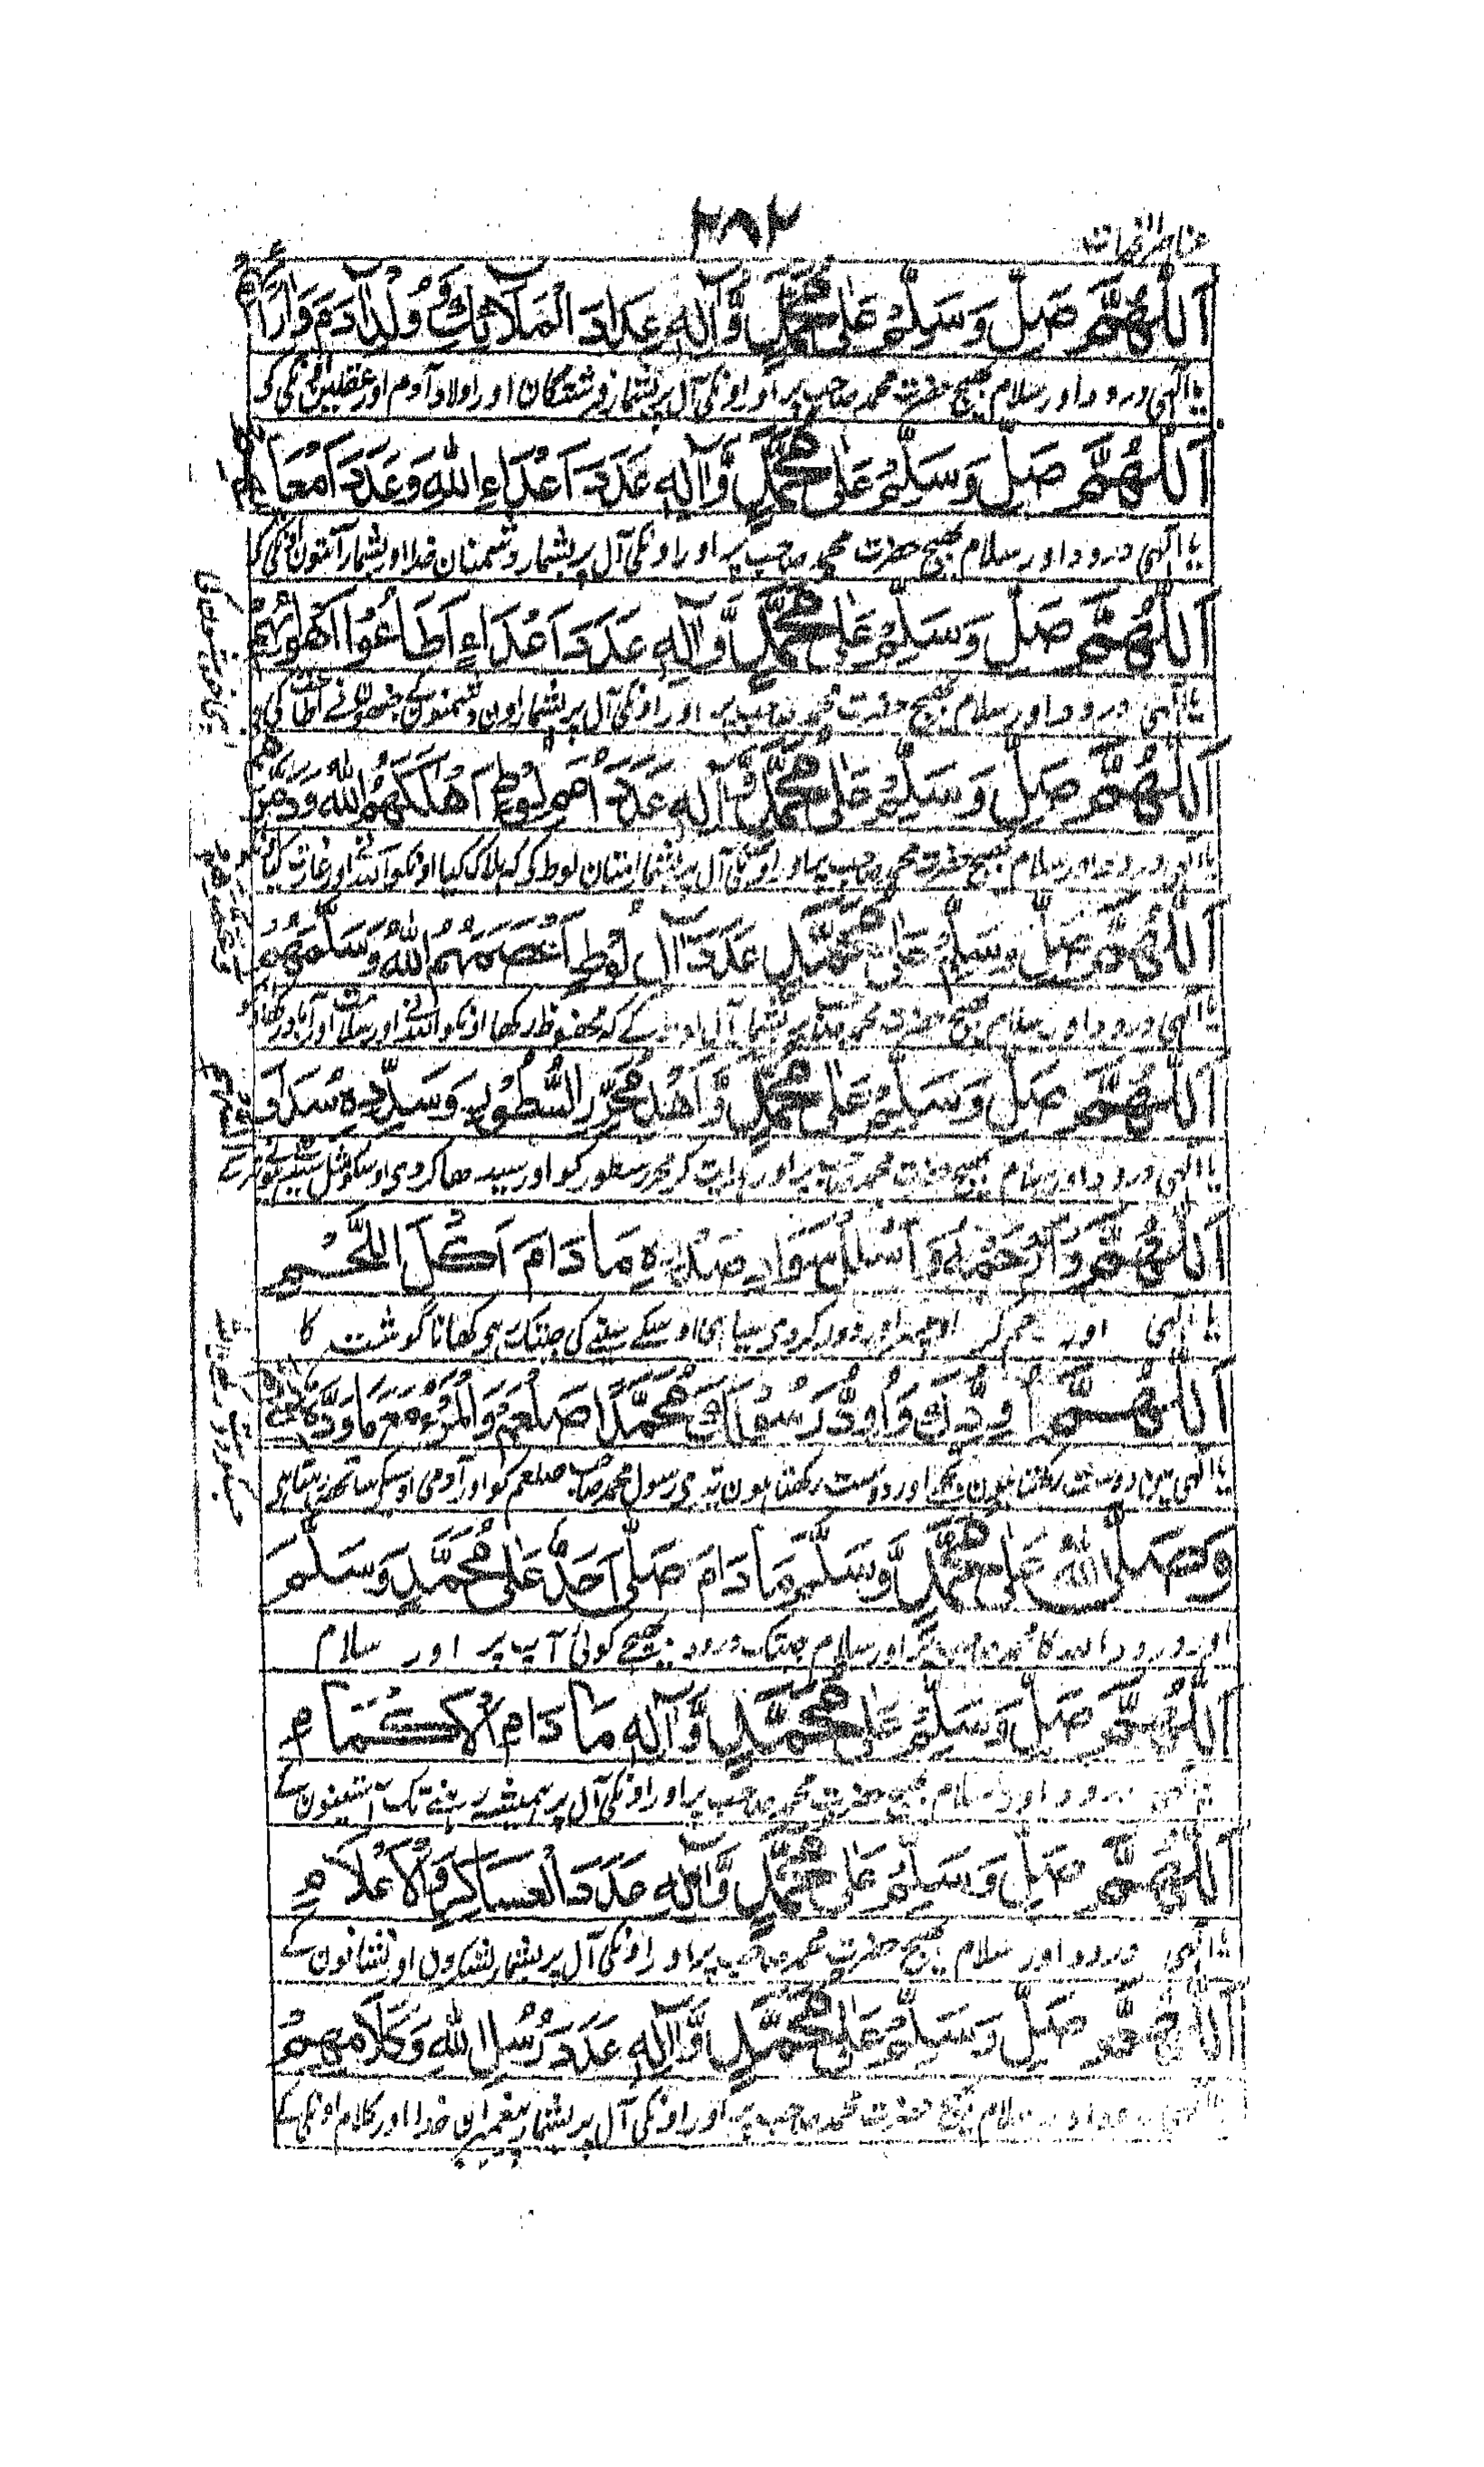 ۲۸۲
اَللّٰهُمَّ صَلِّ وَسَلِّمْ عَلٰى مُحَمَّدٍ وَّآلِهٖ عِدَادَ الْمَلَآئِكِ وَوُلْدِ آدَمَ وَآرَآئِهِمْ
یا الٰہی درود اور سلام بھیج حضرت محمد صاحب پر اور اونکی آل پر بشمار فرشتگان اور اولاد آدم اور عقلیں اونکی کو
اَللّٰهُمَّ صَلِّ وَسَلِّمْ عَلٰى مُحَمَّدٍ وَّآلِهٖ عَدَدَ اَعْدَآءِ اللّٰهِ وَعَدَدَ اَمْعَائِهِمْ
یا الٰہی درود اور سلام بھیج حضرت محمد صاحب پر اور اونکی آل پر بشمار دشمنان خدا اور بشمار آنتون اونکی کے
اَللّٰهُمَّ صَلِّ وَسَلِّمْ عَلٰى مُحَمَّدٍ وَّآلِهٖ عَدَدَ اَعْدَآءٍ اَطَاعُوْا اَهْوَائَهُمْ
یا الٰہی درود اور سلام بھیج حضرت محمد صاحب پر اور اونکی آل پر بشمار اون دشمنوں کے جنھوں نے اطاعت کی
اَللّٰهُمَّ صَلِّ وَسَلِّمْ عَلٰى مُحَمَّدٍ وَّآلِهٖ عَدَدَ اُمَمِ لُوْطٍ اَهْلَكَهُمُ اللّٰهُ وَدَمَّرَهُمْ
یا الٰہی درود اور سلام بھیج حضرت محمد صاحب پر اور اونکی آل پر بشمار امتان لوط کی کہ ہلاک کیا اونکو اللہ نے اور غارت کیا
اَللّٰهُمَّ صَلِّ وَسَلِّمْ عَلٰى مُحَمَّدٍ عَدَدَ آلِ لُوْطٍ عَصَمَهُمُ اللّٰهُ وَسَلَّمَهُمْ
یا الٰہی درود اور سلام بھیج حضرت محمد صاحب پر بشمار آل لوط کے کہ محفوظ رکھا اونکو اللہ نے اور سلامت اور
اَللّٰهُمَّ صَلِّ وَسَلِّمْ عَلٰى مُحَمَّدٍ وَّاهْدِ مُحَرِّرَ السُّطُوْرِ وَسَدِّدْهُ سَدَادَ
یا الٰہی درود اور سلام بھیج حضرت محمد صاحب پر اور ہدایت کر محرر سطور کو اور سیدھا کر دی اوسکو مثل
اَللّٰهُمَّ وَارْحَمْهُ وَ سَوَادِ صَدْرِهٖ مَا دَامَ اَكْلُ اللَّحْمِ
یا الٰہی اور رحم کر اوپر اور دور کر دی سیاہی اوسکے سینے کی جبتک رہی کھانا گوشت کا
اَللّٰهُمَّ اُوِدُّكَ وَاُوِدُّ رَسُوْلَكَ مُحَمَّدًا صَلْعَمْ وَالْمَرْءُ مَعَ مَا وَدَّهُ
یا الٰہی میں دوست رکھتا ہون تجھے اور دوست رکھتا ہون تیری رسول محمد صاحب صلعم کو اور آدمی اوسکے ساتھ رہتا ہی
وَصَلَّى اللّٰهُ عَلٰى مُحَمَّدٍ وَّسَلَّمَ مَا دَامَ صَلّٰى اَحَدٌ عَلٰى مُحَمَّدٍ وَسَلَّمَ
اور درود اللہ کا محمد صاحب پر اور سلام جبتک درود بھیجے کوئی آپ پر اور سلام
اَللّٰهُمَّ صَلِّ وَسَلِّمْ عَلٰى مُحَمَّدٍ وَّآلِهٖ مَا دَامَ الْاَكْمَامُ
یا الٰہی درود اور سلام بھیج حضرت محمد صاحب پر اور اونکی آل پر ہمیشہ رہنے تک آستینون کے
اَللّٰهُمَّ صَلِّ وَسَلِّمْ عَلٰى مُحَمَّدٍ وَّآلِهٖ عَدَدَ الْعَسَاكِرِ وَالْاَعْلَامِ
یا الٰہی درود اور سلام بھیج حضرت محمد صاحب پر اور اونکی آل پر بشمار لشکرون اور نشانون کے
اَللّٰهُمَّ صَلِّ وَسَلِّمْ عَلٰى مُحَمَّدٍ وَّآلِهٖ عَدَدَ رُسُلِ اللّٰهِ وَكَلَامِهِمْ
یا الٰہی درود اور سلام بھیج حضرت محمد صاحب پر اور اونکی آل پر بشمار پیغمبران خدا اور کلام اونکی کے